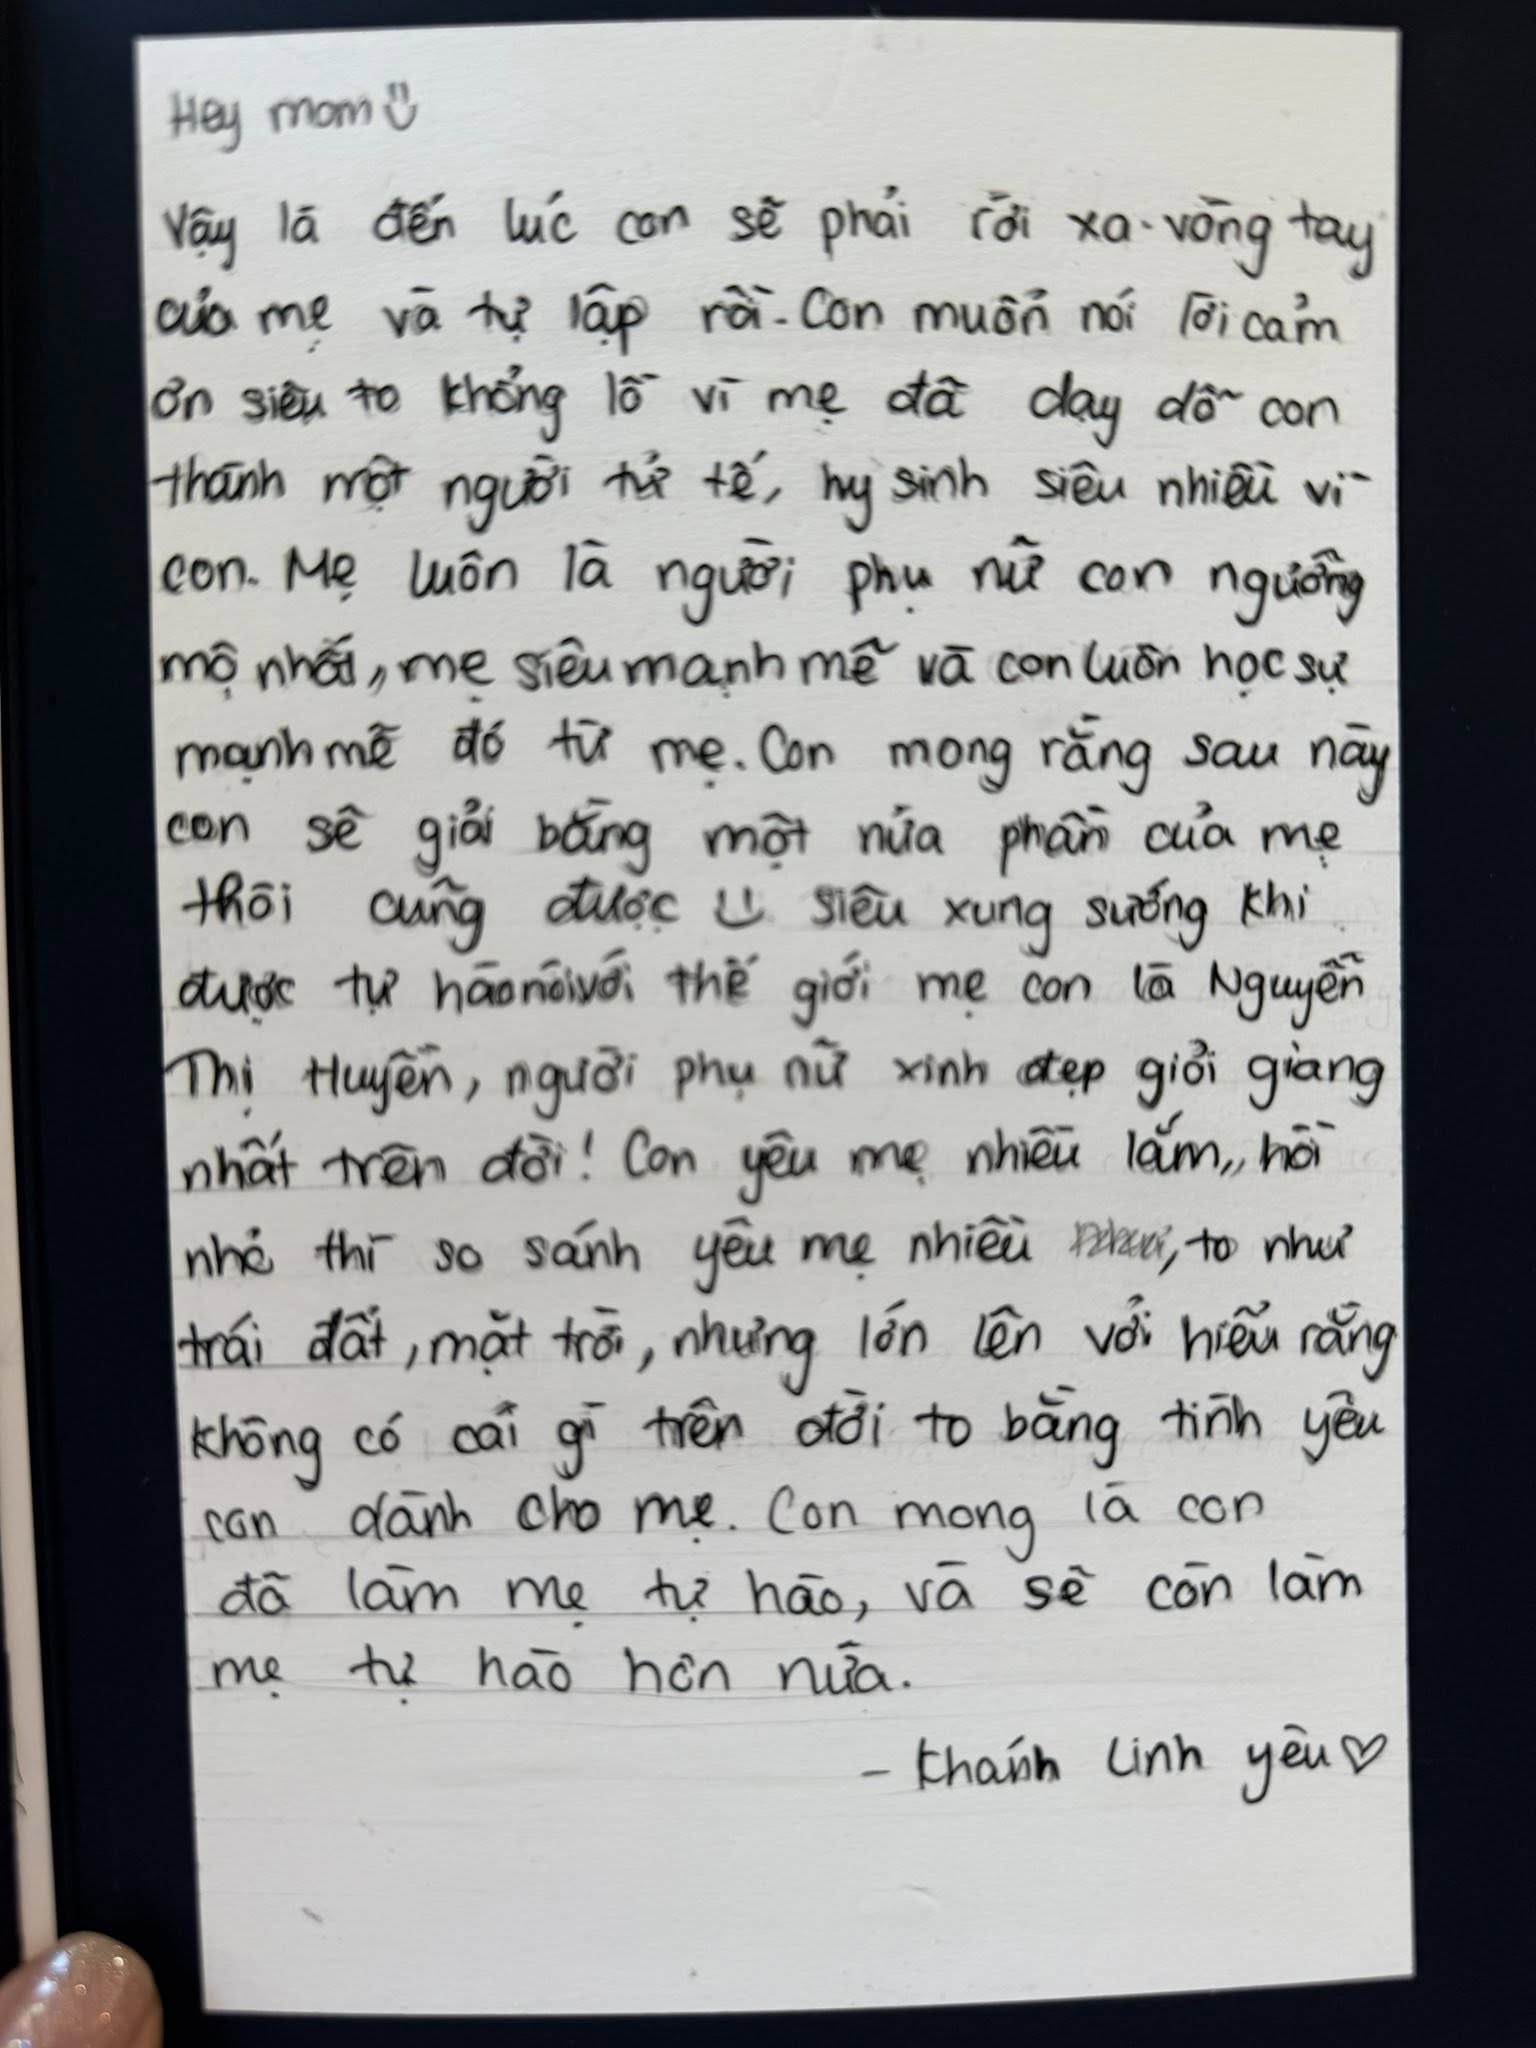 Hey mom
Vậy là đến lúc con sẽ phải rời xa vòng tay
của mẹ và tự lập rồi. Con muốn nói lời cảm
ơn siêu to khổng lồ vì mẹ đã dạy dỗ con
thành một người tử tế, hy sinh siêu nhiều vì
con. Mẹ luôn là người phụ nữ con ngưỡng
mộ nhất,, mẹ siêu mạnh mẽ và con luôn học sự
mạnh mẽ đó từ mẹ. Con mong rằng sau này
con sẽ giỏi bằng một nửa phần của mẹ
thôi cũng được siêu xung sướng khi
được tự hào nói với thế giới mẹ con là Nguyễn
Thị Huyền, người phụ nữ xinh đẹp giỏi giang
nhất trên đời! Con yêu mẹ nhiều lắm,, hồi
nhỏ thì so sánh yêu mẹ nhiều , to như
trái đất, mặt trời, nhưng lớn lên với hiểu rằng
không có cái gì trên đời to bằng tình yêu
con dành cho mẹ. Con mong là con
đã làm mẹ tự hào, và sẽ còn làm
mẹ tự hào hơn nữa.
- Khánh Linh yêu ♡